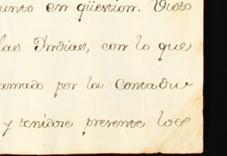 unto en qüestion. Visto
las Indias, con lo que
formado por la Contadu-
y tenidose presente los